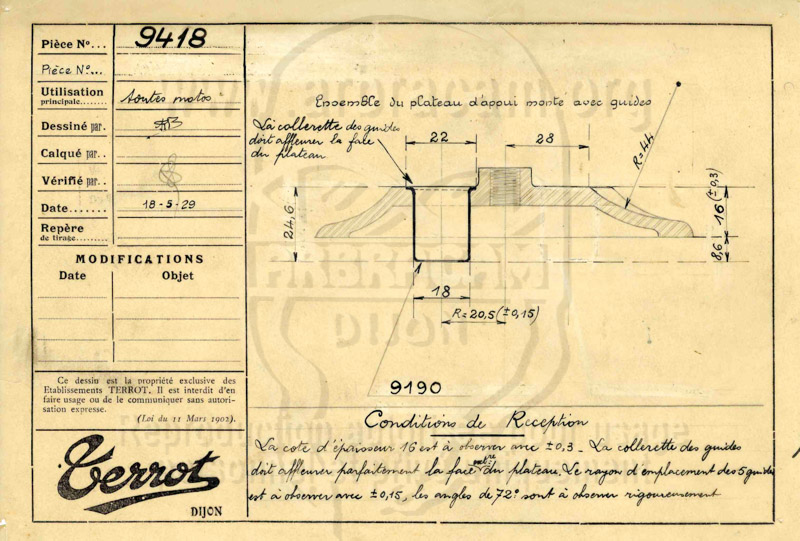 Pièce Nº... 9418
Pièce Nº...
Utilisation
principale........ toutes motos
Dessiné par.
Calqué par..
Vérifié par..
Date....... 18-5-29
Repère
de tirage..........
MODIFICATIONS
Date Objet
Ce dessin est la propriété exclusive des
Etablissements TERROT. Il est interdit d'en
faire usage ou de le communiquer sans autori-
sation expresse.
(Loi du 11 Mars 1902).
Terrot
DIJON
Ensemble du plateau d'appui monté avec guides
La collerette des guides
doit affleurer la face
du plateau
22
28
R=44
24,6
16 (±0,3)
8,6
18
R=20,5 (±0,15)
9190
Conditions de Réception
La cote d'épaisseur 16 est à observer avec ±0,3 - La collerette des guides
doit affleurer parfaitement la face du plateau. Le rayon d'emplacement des 5 guides
est à observer avec ±0,15, les angles de 72° sont à observer rigoureusement
ARBRACAM
DIJON